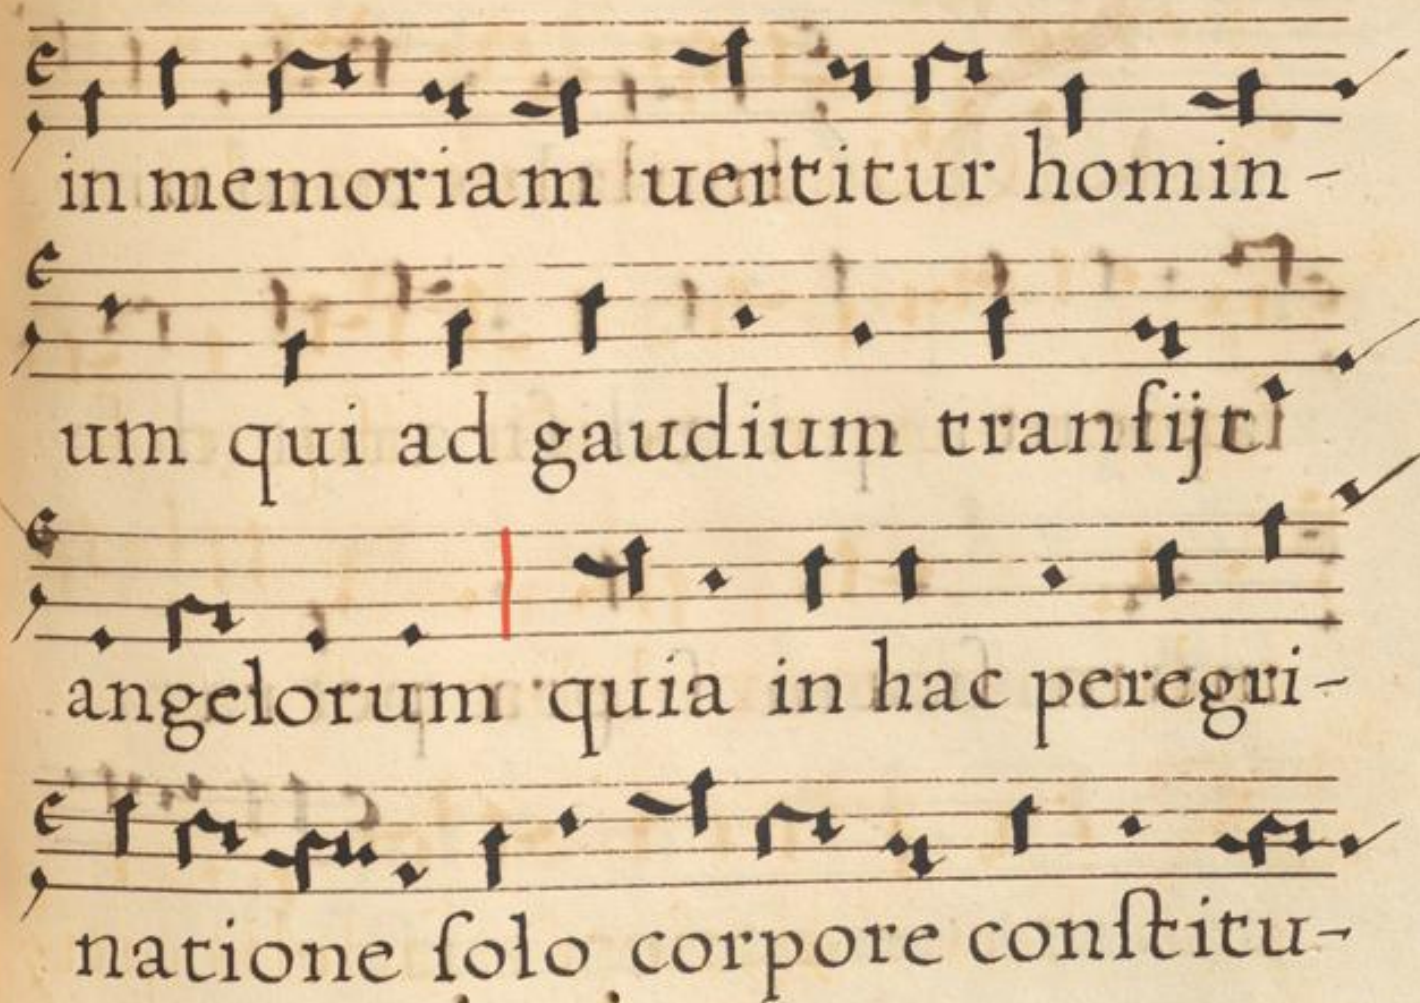 in memoriam uertitur homin-
um qui ad gaudium tranſijt
angelorum quia in hac peregri-
natione ſolo corpore conſtitu-